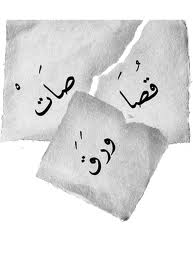 قُصَا صَاتْ
وَرَق